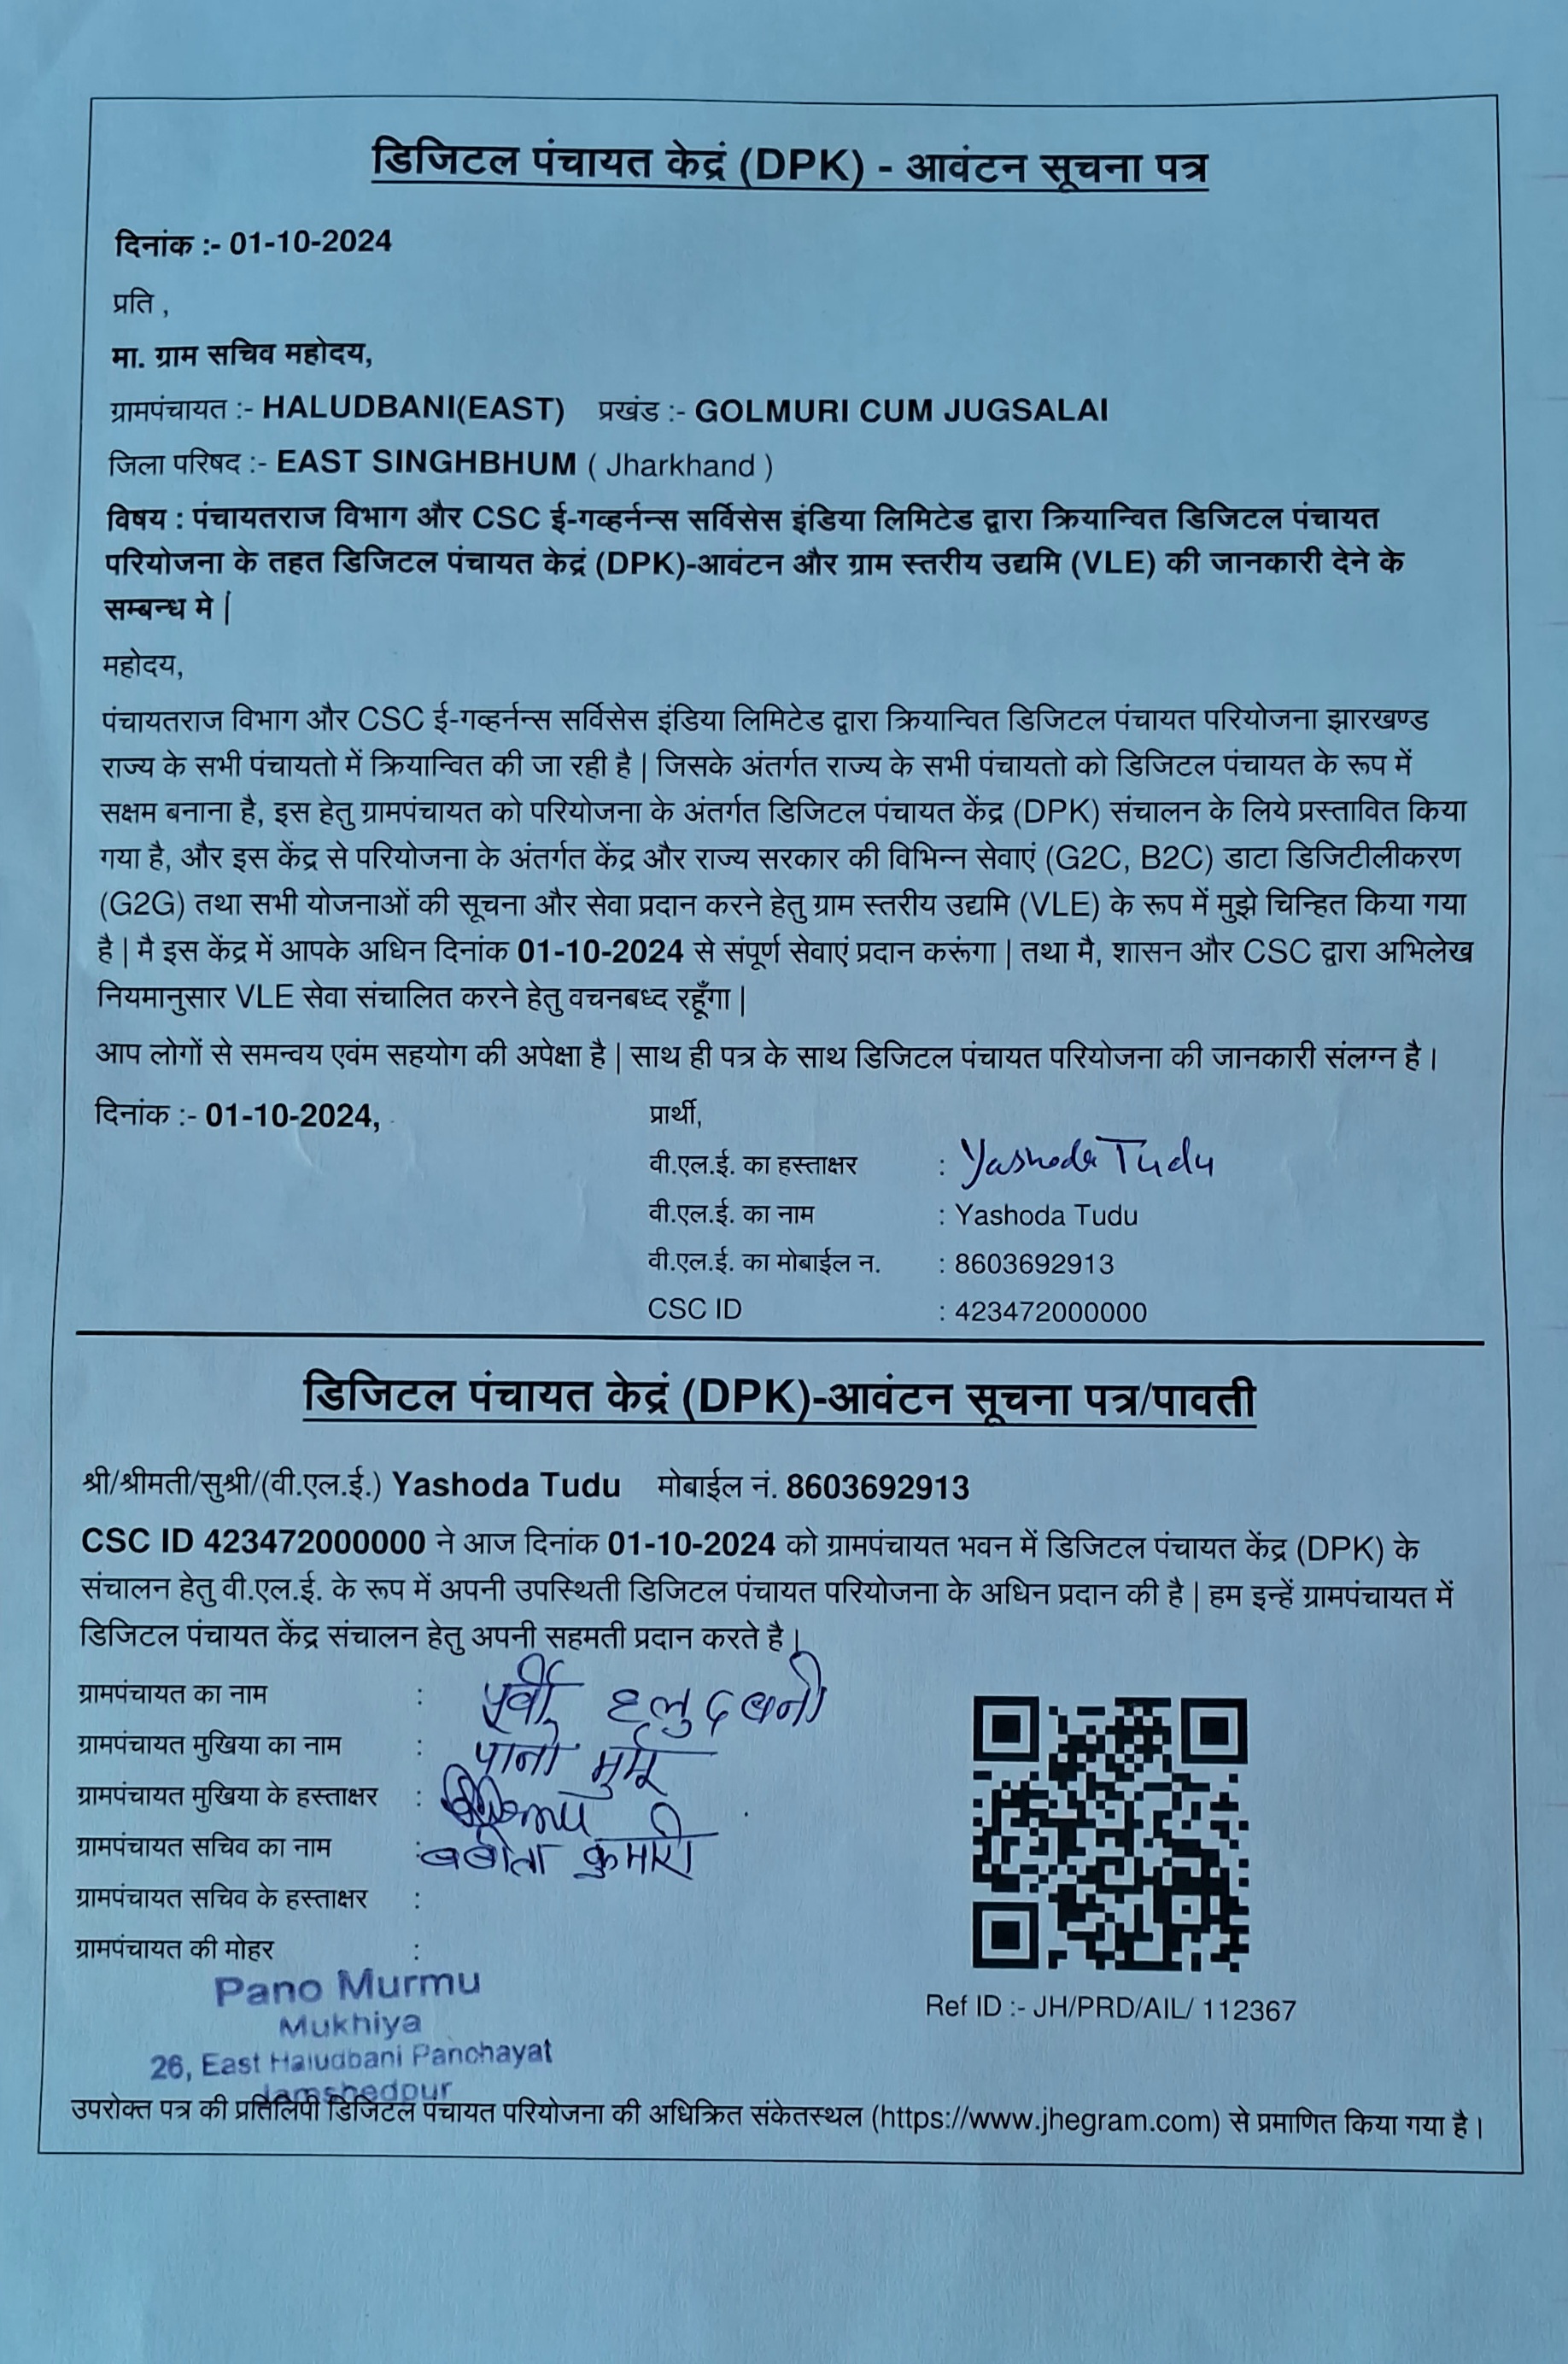 डिजिटल पंचायत केद्रं (DPK) - आवंटन सूचना पत्र
दिनांक :- 01-10-2024
प्रति ,
मा. ग्राम सचिव महोदय,
ग्रामपंचायत :- HALUDBANI(EAST) प्रखंड :- GOLMURI CUM JUGSALAI
जिला परिषद :- EAST SINGHBHUM ( Jharkhand )
विषय : पंचायतराज विभाग और CSC ई-गव्हर्नन्स सर्विसेस इंडिया लिमिटेड द्वारा क्रियान्वित डिजिटल पंचायत
परियोजना के तहत डिजिटल पंचायत केद्रं (DPK)-आवंटन और ग्राम स्तरीय उद्यमि (VLE) की जानकारी देने के
सम्बन्ध मे |
महोदय,
पंचायतराज विभाग और CSC ई-गव्हर्नन्स सर्विसेस इंडिया लिमिटेड द्वारा क्रियान्वित डिजिटल पंचायत परियोजना झारखण्ड
राज्य के सभी पंचायतो में क्रियान्वित की जा रही है | जिसके अंतर्गत राज्य के सभी पंचायतो को डिजिटल पंचायत के रूप में
सक्षम बनाना है, इस हेतु ग्रामपंचायत को परियोजना के अंतर्गत डिजिटल पंचायत केंद्र (DPK) संचालन के लिये प्रस्तावित किया
गया है, और इस केंद्र से परियोजना के अंतर्गत केंद्र और राज्य सरकार की विभिन्न सेवाएं (G2C, B2C) डाटा डिजिटीलीकरण
(G2G) तथा सभी योजनाओं की सूचना और सेवा प्रदान करने हेतु ग्राम स्तरीय उद्यमि (VLE) के रूप में मुझे चिन्हित किया गया
है | मै इस केंद्र में आपके अधिन दिनांक 01-10-2024 से संपूर्ण सेवाएं प्रदान करूंगा | तथा मै, शासन और CSC द्वारा अभिलेख
नियमानुसार VLE सेवा संचालित करने हेतु वचनबध्द रहूँगा |
आप लोगों से समन्वय एवंम सहयोग की अपेक्षा है | साथ ही पत्र के साथ डिजिटल पंचायत परियोजना की जानकारी संलग्न है ।
दिनांक :- 01-10-2024, प्रार्थी,
वी.एल.ई. का हस्ताक्षर : Yashoda Tudu
वी.एल.ई. का नाम : Yashoda Tudu
वी.एल.ई. का मोबाईल न. : 8603692913
CSC ID : 423472000000
डिजिटल पंचायत केद्रं (DPK)-आवंटन सूचना पत्र/पावती
श्री/श्रीमती/सुश्री/(वी.एल.ई.) Yashoda Tudu मोबाईल नं. 8603692913
CSC ID 423472000000 ने आज दिनांक 01-10-2024 को ग्रामपंचायत भवन में डिजिटल पंचायत केंद्र (DPK) के
संचालन हेतु वी.एल.ई. के रूप में अपनी उपस्थिती डिजिटल पंचायत परियोजना के अधिन प्रदान की है | हम इन्हें ग्रामपंचायत में
डिजिटल पंचायत केंद्र संचालन हेतु अपनी सहमती प्रदान करते है |
ग्रामपंचायत का नाम : पूर्वी हलुदबनी
ग्रामपंचायत मुखिया का नाम : पानो मुर्मू
ग्रामपंचायत मुखिया के हस्ताक्षर :
ग्रामपंचायत सचिव का नाम : बबीता कुमारी
ग्रामपंचायत सचिव के हस्ताक्षर :
ग्रामपंचायत की मोहर :
Pano Murmu
Mukhiya
26, East Haludbani Panchayat
Jamshedpur
Ref ID :- JH/PRD/AIL/ 112367
उपरोक्त पत्र की प्रतिलिपी डिजिटल पंचायत परियोजना की अधिक्रित संकेतस्थल (https://www.jhegram.com) से प्रमाणित किया गया है ।